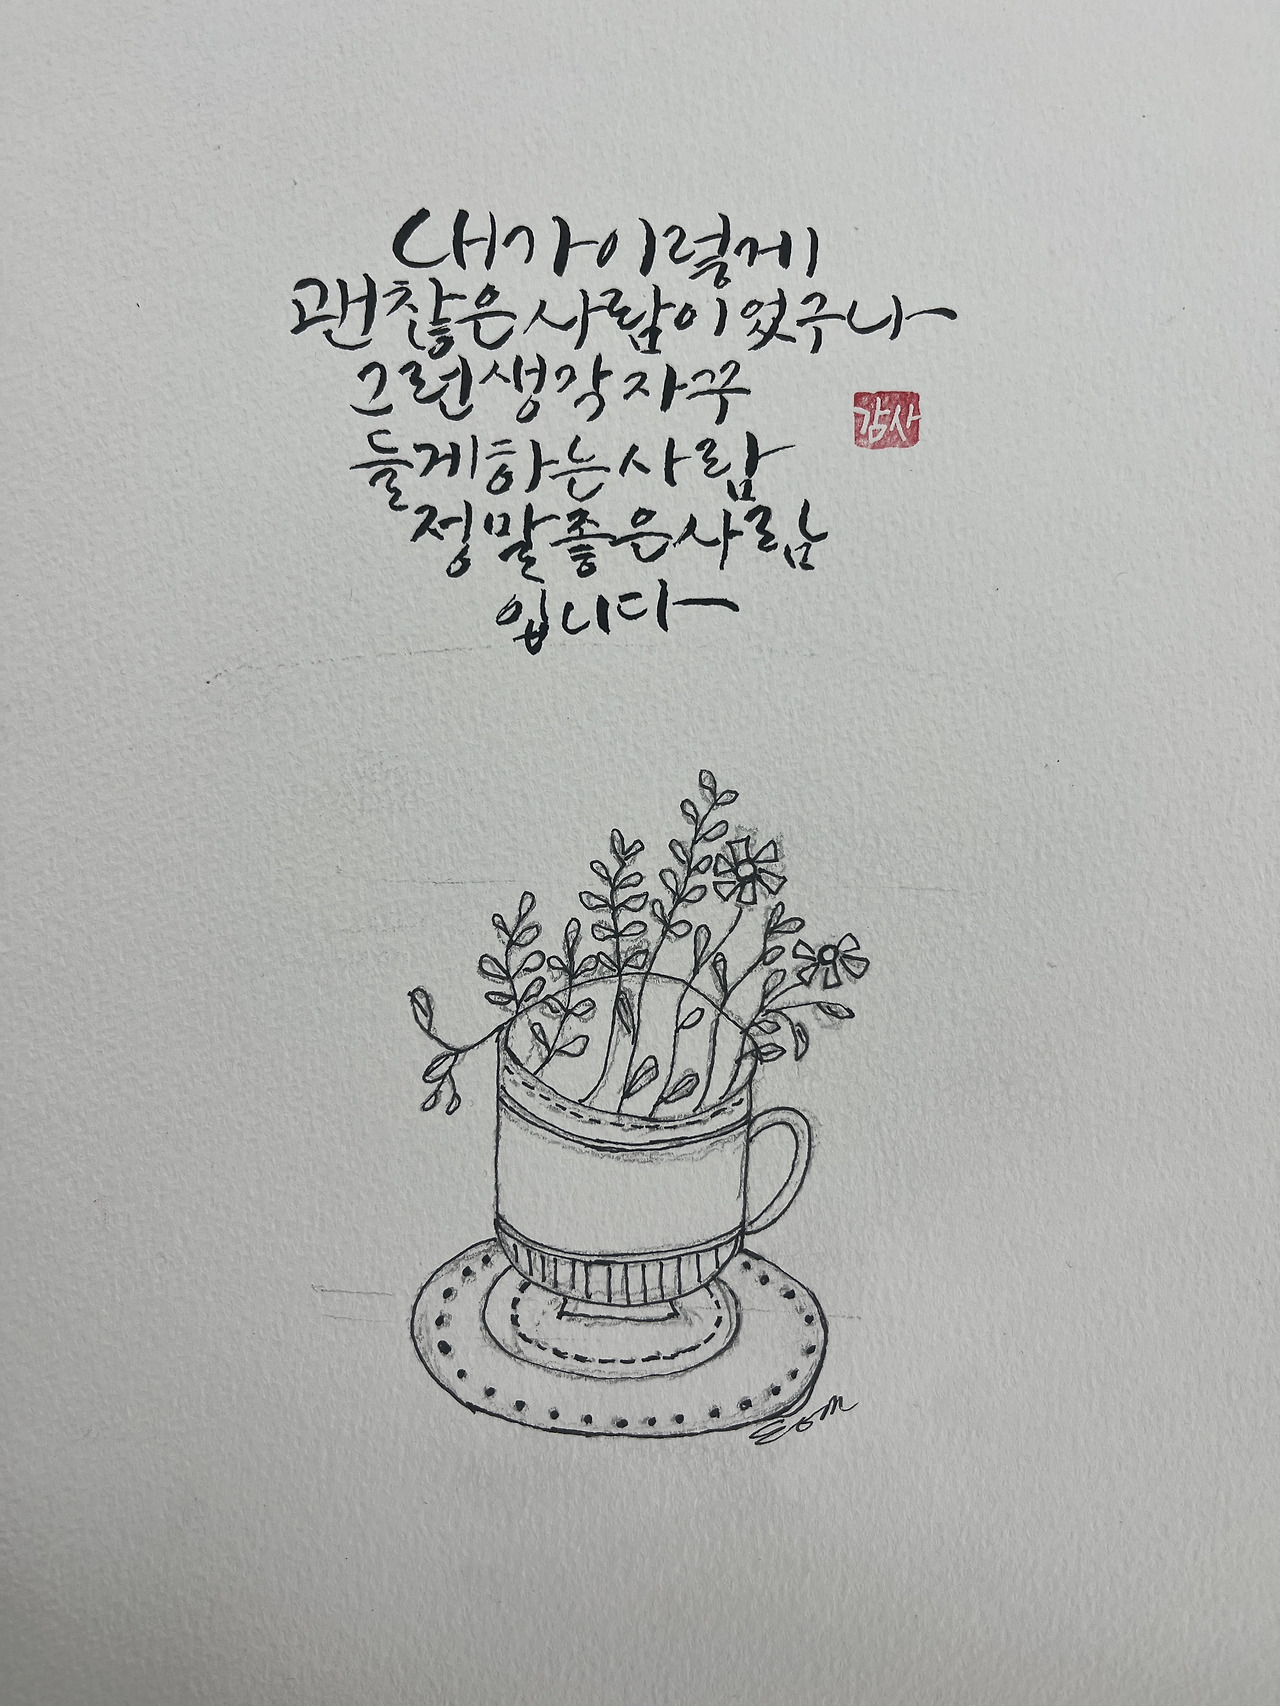 내가이렇게
괜찮은사람이었구나
그런생각자꾸
들게하는사람
정말좋은사람
입니다
감사
Eom